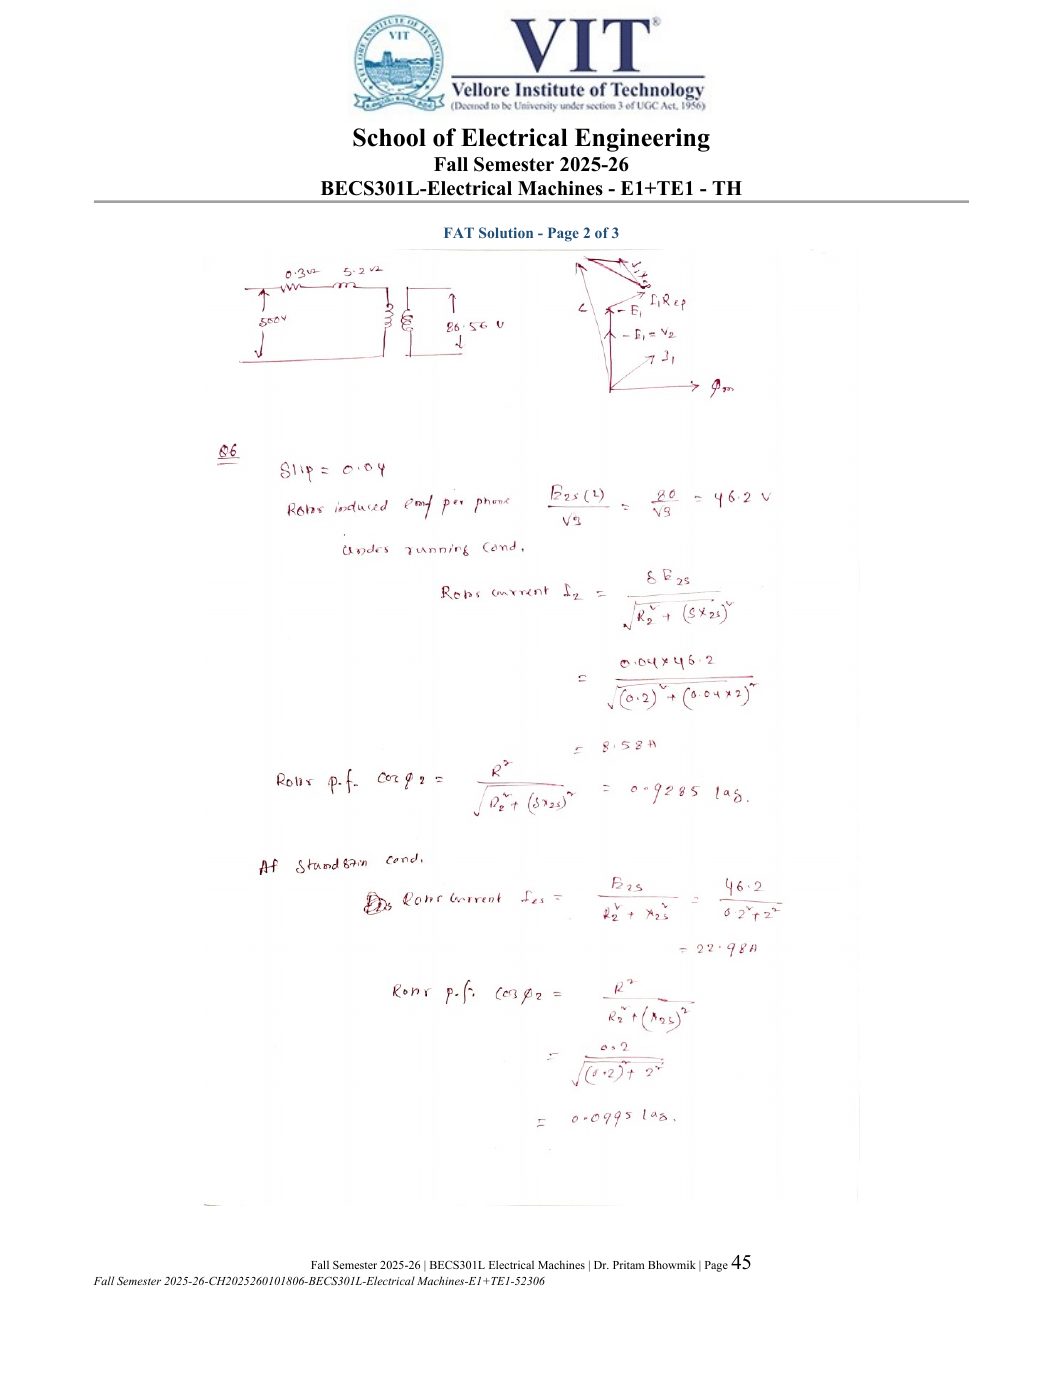 VIT
VELLORE INSTITUTE OF TECHNOLOGY
VIT®
Vellore Institute of Technology
(Deemed to be University under section 3 of UGC Act, 1956)
School of Electrical Engineering
Fall Semester 2025-26
BECS301L-Electrical Machines - E1+TE1 - TH
FAT Solution - Page 2 of 3
0.3Ω 5.2Ω
500V
86.56 V
I₁Rep
- E₁
- E₁ = V₂
I₁
φm
Q6
Slip = 0.04
Rotor induced emf per phase E₂s(L)/√3 = 80/√3 = 46.2 V
Under running cond.
Rotor current I₂ = S E₂s / √(R₂² + (Sx₂s)²)
= 0.04×46.2 / √((0.2)² + (0.04×2)²)
= 8.58A
Rotor p.f. cos φ2 = R² / √(R₂² + (Sx₂s)²) = 0.9285 lag.
At Standstin cond.
Rotor current I₂s = E₂s / R₂² + X₂s² = 46.2 / 0.2² + 2²
= 22.98A
Rotor p.f. cos φ2 = R² / R₂² + (X₂s)²
= 0.2 / √((0.2)² + 2²)
= 0.0995 lag.
Fall Semester 2025-26 | BECS301L Electrical Machines | Dr. Pritam Bhowmik | Page 45
Fall Semester 2025-26-CH2025260101806-BECS301L-Electrical Machines-E1+TE1-52306